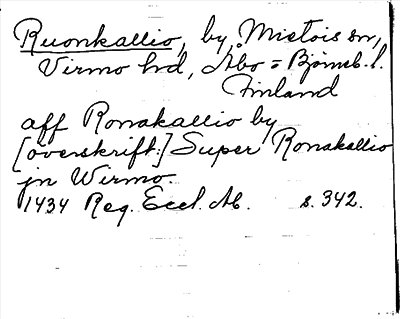 Ruonkallio, by, Mietois sn,
Virmo hd, Åbo = Björneb. l.
Finland
aff Ronakallio by
[överskrift:] Super Ronakallio
jn Wirmo.
1434 Reg. Eccl. Ab. s. 342.